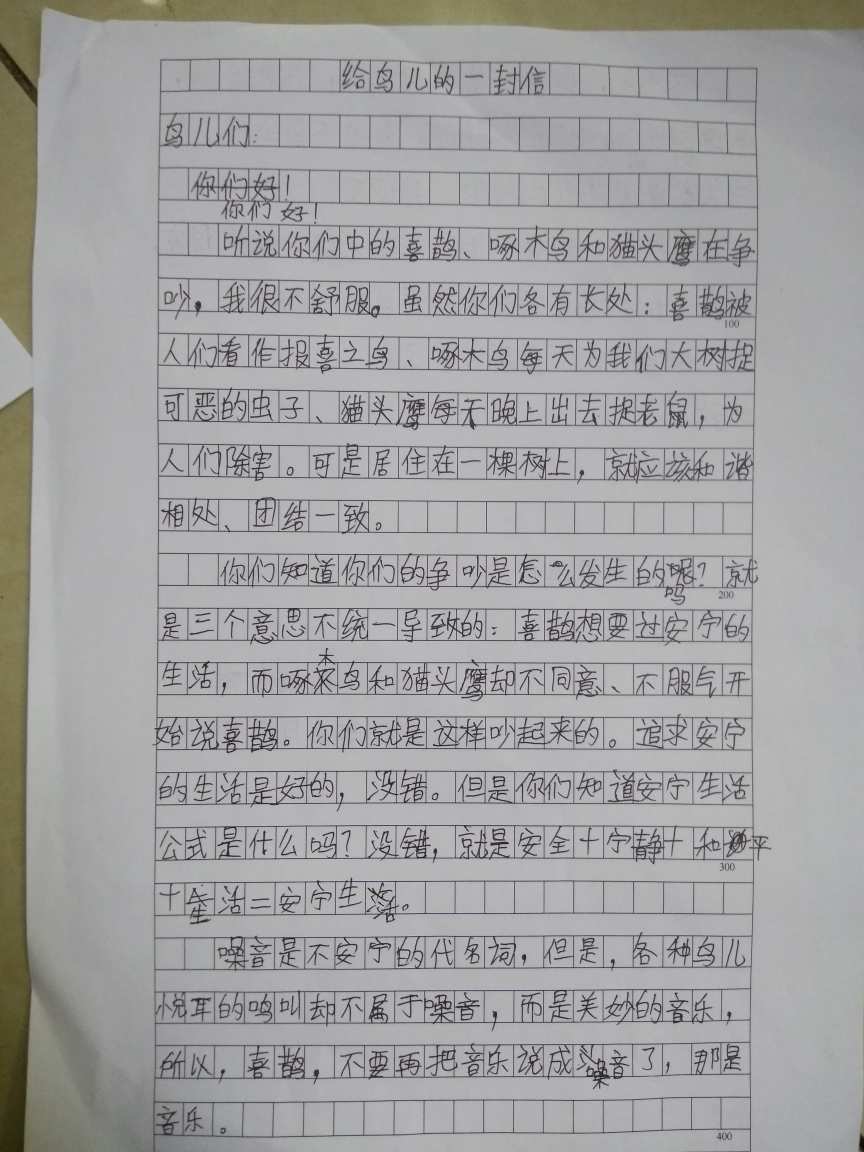 给鸟儿的一封信
鸟儿们:
你们好!
你们好!
听说你们中的喜鹊、啄木鸟和猫头鹰在争
吵,我很不舒服。虽然你们各有长处:喜鹊被
100
人们看作报喜之鸟、啄木鸟每天为我们大树捉
可恶的虫子、猫头鹰每天晚上出去捉老鼠,为
人们除害。可是居住在一棵树上,就应该和谐
相处、团结一致。
你们知道你们的争吵是怎么发生的吗?就
200
是三个意思不统一导致的:喜鹊想要过安宁的
生活,而啄木鸟和猫头鹰却不同意、不服气开
始说喜鹊。你们就是这样吵起来的。追求安宁
的生活是好的,没错。但是你们知道安宁生活
公式是什么吗?没错,就是安全+宁静+和平
300
+生活=安宁生活。
噪音是不安宁的代名词,但是,各种鸟儿
悦耳的鸣叫却不属于噪音,而是美妙的音乐,
所以,喜鹊,不要再把音乐说成噪音了,那是
音乐。
400